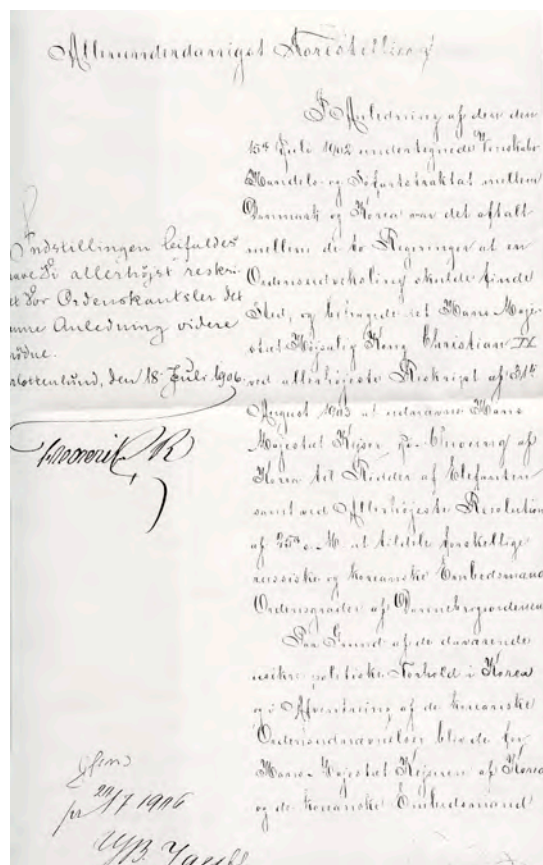 Allerunderdanigst Forestilling
I Anledning af den den
15de Juli 1902 undertegnede Venskabs
Handels- og Søfartstraktat mellem
Danmark og Korea var det aftalt
mellem de to Regeringer at en
Ordensudveksling skulde finde
Sted, og behagede det Hans Maje-
stæt Højsalig Kong Christian IX
ved allerhøjeste Reskript af 31te
August 1903 at udnævne Hans
Majestæt Kejser af
Korea til Ridder af Elefanten
samt ved Allerhøjeste Resolution
af 25de s. M. at tildele forskellige
russiske og koreanske Embedsmænd
Ordensgrader af Dannebrogordenen
Paa Grund af de daværende
usikre politiske Forhold i Korea
og i Afventning af de koreanske
Ordensudnævnelser bleve de for
Hans Majestæt Kejseren af Korea
og de koreanske Embedsmænd
Indstillingen bifaldes
have Vi allerhøjst reskri-
et Vor Ordenskantsler det
nne Anledning videre
nødne.
rlottenlund, den 18 Juli 1906.
Frederik R
22/7 1906